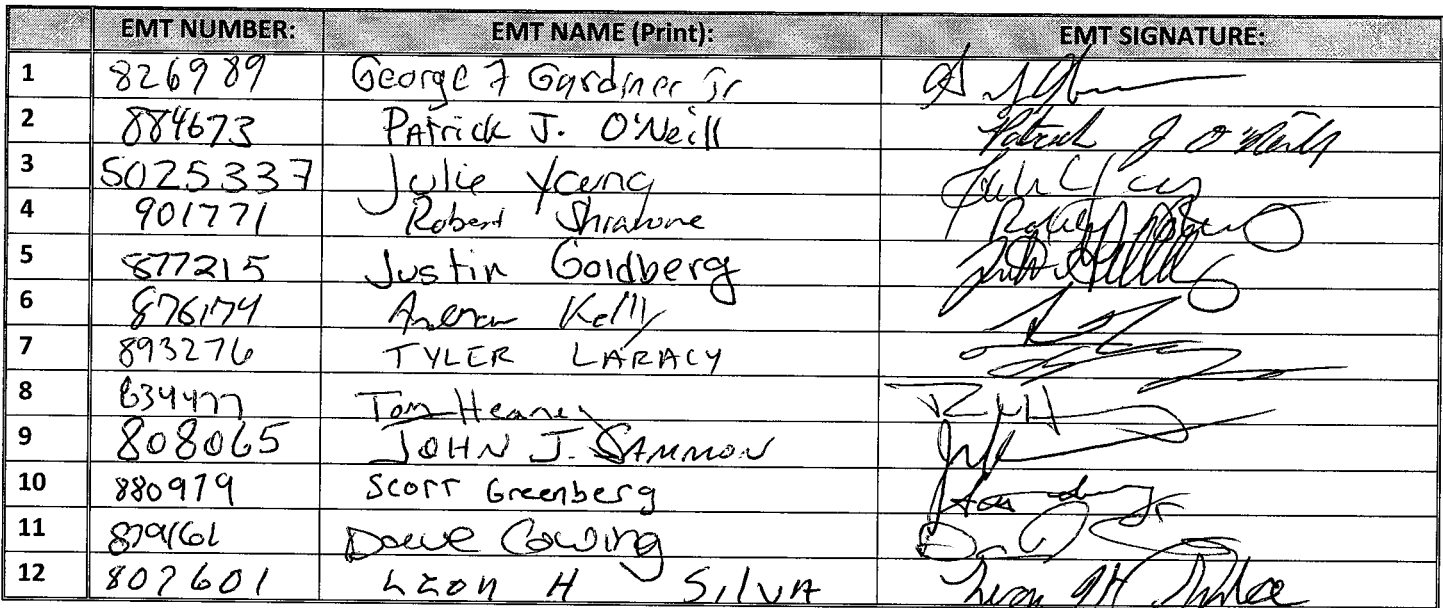 EMT NUMBER: EMT NAME (Print): EMT SIGNATURE:
1 826989 George F Gardner Jr
2 884673 Patrick J. O'Neill Patrick J O'Neill
3 5025337 Julie Young
4 901771 Robert
5 877215 Justin Goldberg
6 876174 Andrew Kelly
7 893276 TYLER LARACY
8 834477 Tom Heaney
9 808065 JOHN J. SAMMON
10 880979 Scott Greenberg
11 879161 Dave Cowing
12 802601 Leon H Silva Leon H Silva